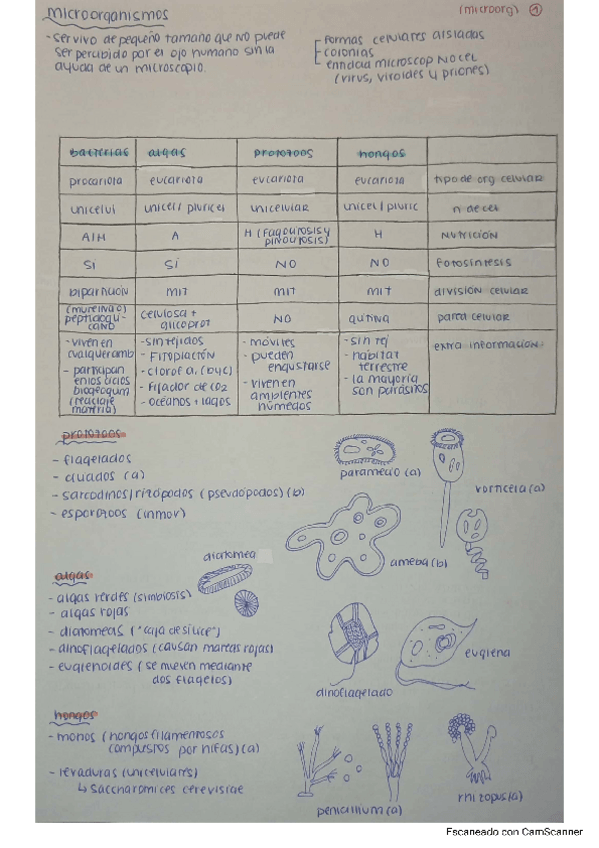 microorganismos
(microorg) 1
- ser vivo de pequeño tamaño que no puede
ser percibido por el ojo humano sin la
ayuda de un microscopio.
formas celulares aisladas
colonias
entidad microscop no cel
(virus, viroides y priones)
bacterias algas protozoos hongos
procariota eucariota eucariota eucariota tipo de org celular
unicelul unicel/pluricel unicelular unicel/pluric n de cel
A/H A H (fagocitosis y pinocitosis) H nutrición
SI SI NO NO fotosíntesis
bipartición mit mit mit división celular
(mureína o) peptidoglucano celulosa + glicoprot NO quitina pared celular
- viven en cualquier amb
- participan en los ciclos biogeoquim (reciclaje materia)
- sin tejidos
- fitoplacton
- clorof a, (b y c)
- fijador de CO2
- oceanos + lagos
- móviles
- pueden enquistarse
- viven en ambientes húmedos
- sin tej
- habitat terrestre
- la mayoría son parásitos
extra información
protozoos
- flagelados
- ciliados (a)
- sarcodinos/rizópodos (pseudópodos) (b)
- esporozoos (inmov)
paramecio (a)
vorticela (a)
ameba (b)
diatomea
algas
- algas verdes (simbiosis)
- algas rojas
- diatomeas ("caja de sílice")
- dinoflagelados (causan mareas rojas)
- euglenoides (se mueven mediante
dos flagelos)
euglena
dinoflagelado
hongos
- mohos (hongos filamentosos
compustos por hifas) (a)
- levaduras (unicelulares)
↳ saccharomices cerevisiae
penicillium (a)
rhizopus (a)
Escaneado con CamScanner